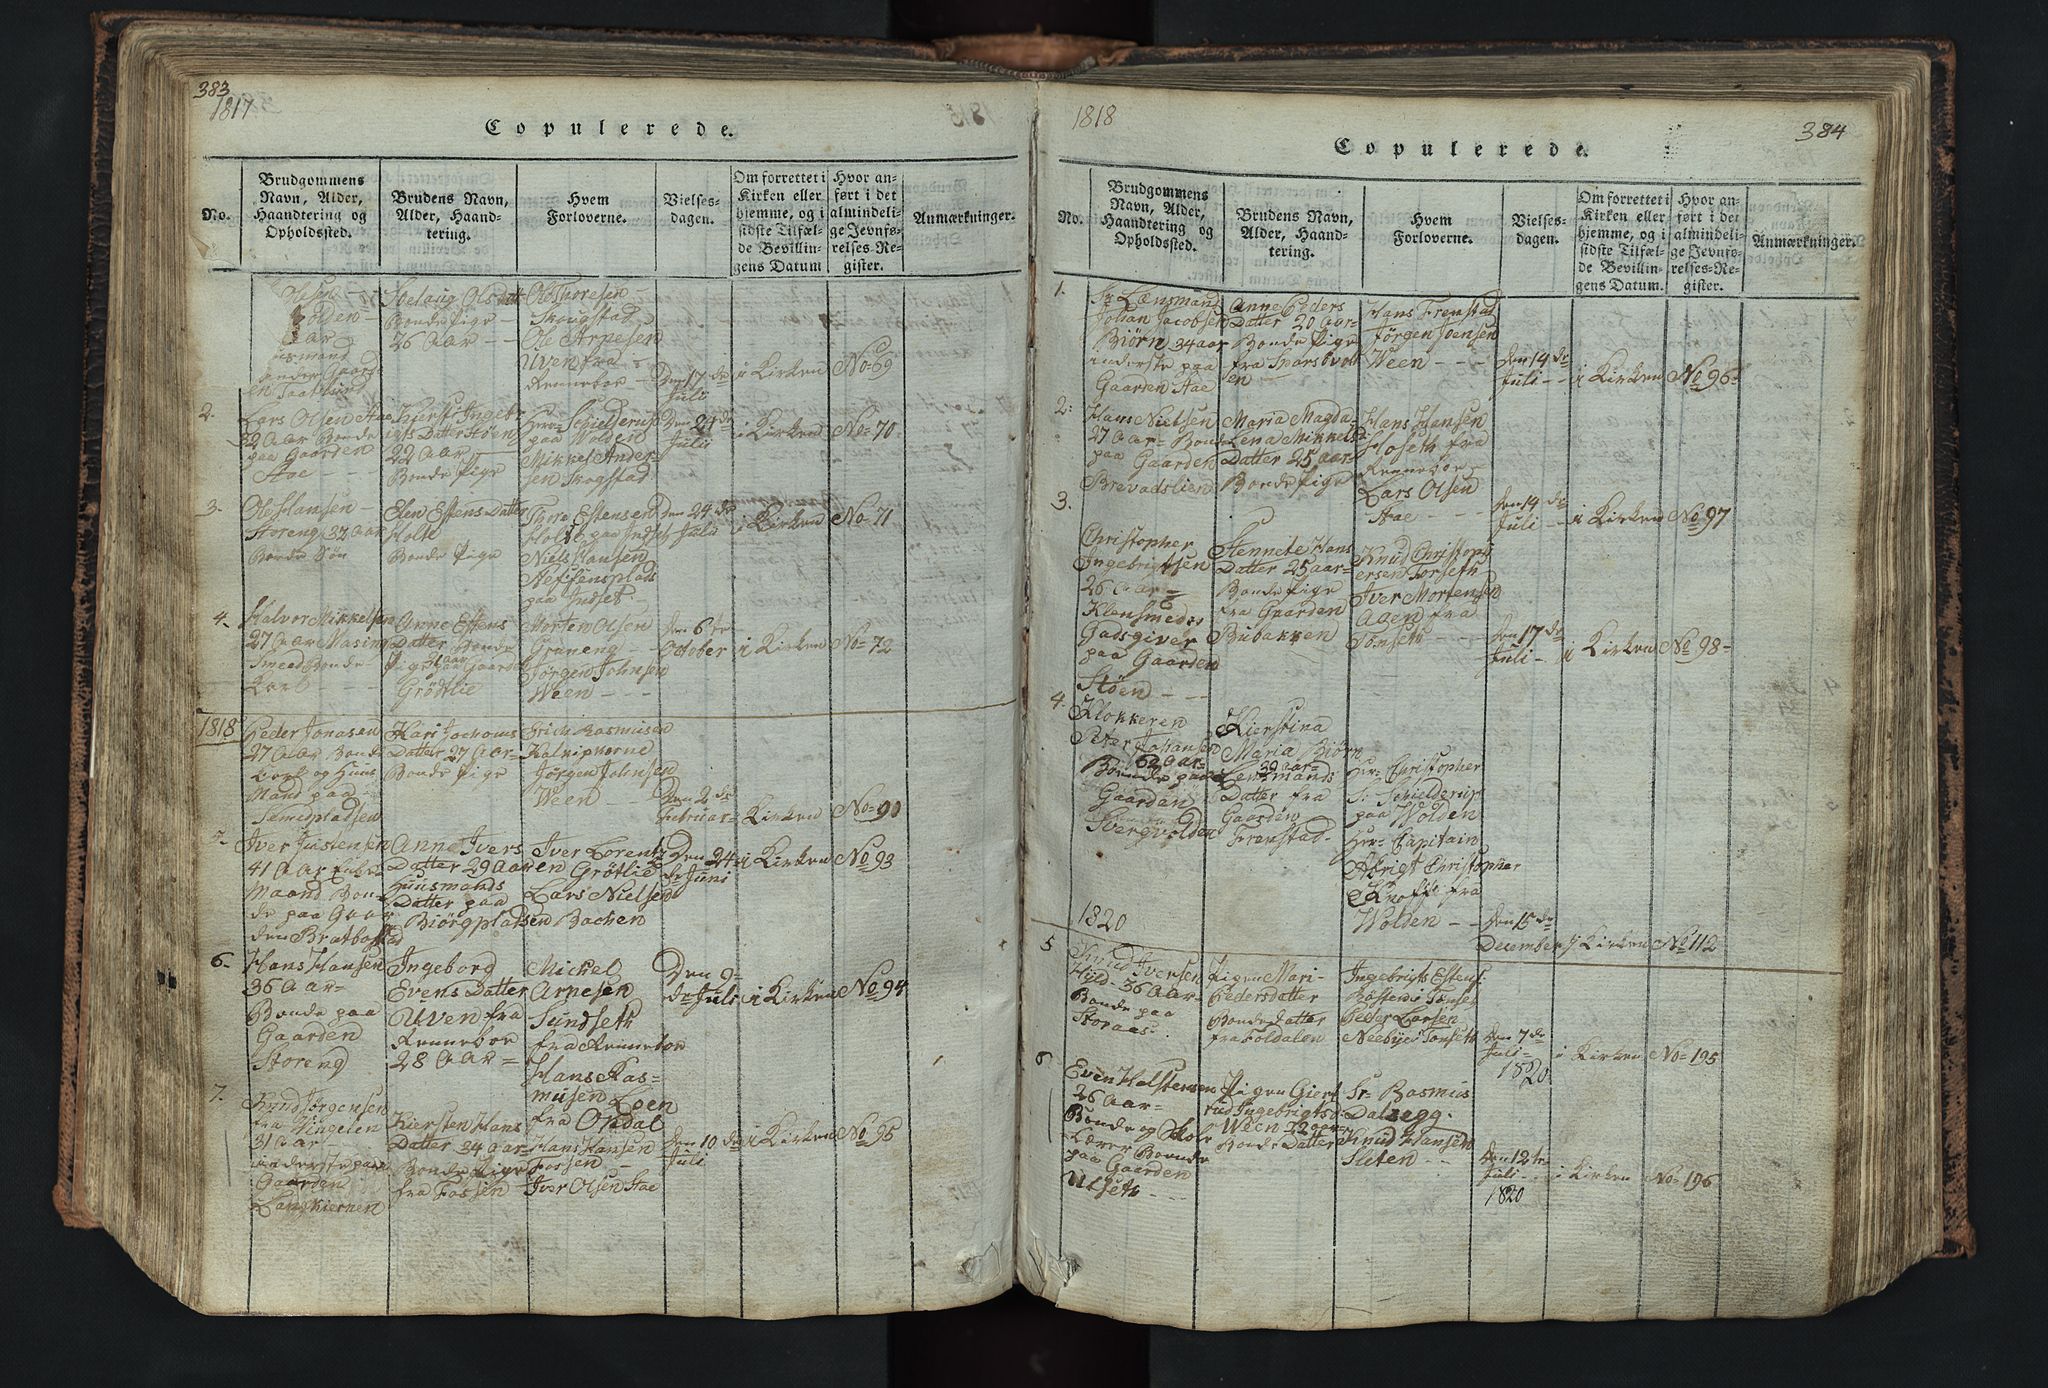 383
1817
Copulerede.
No.
Brudgommens Navn, Alder, Haandtering og Opholdssted.
Brudens Navn, Alder, Haandtering.
Hvem Forloverne.
Vielsesdagen.
Om forrettet i Kirken eller hjemme, og i sidste Tilfælde Bevillingens Datum
Hvor anført i det almindelige Jevnførelses-Register.
Anmærkninger.
Olsen
Solden
Aar
Olsdatter
Bonde Pige
26 Aar
Ole Thoresen
Skougstad
Ole Arnesen
Uven fra
Rennebor
Den 17 de
Juli
i Kirken
No 69
2.
Lars Olsen Aae
32 Aar Bonde
paa Gaarden
Aae
Kiersti Ingebrigts Datter Støen
22 Aar
Bonde Pige
Herr Schielderup
paa Wolden
Mikkel Andersen Skogstad
Den 24 de
Juli
i Kirken
No 70
3.
Ole Hansen
Storeng 32 Aar
Bonde Søn
Elen Estens Datter
Holte
Bonde Pige
Thore Estensen
Holte paa Indset
Niels Hansen
paa Indset
den 24 de
Juli
i Kirken
No 71
4.
Halvor Mikkelsen
27 Aar
Smeed Bonde
Karl
Anne Estens
Datter Bonde
Pige
Grøtlie
Morten Olsen
Grøneng
Jørgen Johnsen
Ween
Den 6 te
October
i Kirken
No 72
1818
Peder Jonasen
27 Aar Bonde
Karl og Huus
Mand paa
Kari Jochoms
Datter 27 Aar
Bonde Pige
Erich Rasmusen
Jørgen Johnsen
Ween
Den 2 de
Februar
i Kirken
No 90
5.
Iver Justensen
41 Aar Enke
Maand Bonde paa Gaarden Bratbakstad
Anne Ivers
Datter 29 Aar
Huusmands
Datter paa
Biörgpladsen
Iver Lorentzen Grötlie
Lars Nielsen
Bachen
Den 24
de Juni
i Kirken
No 93
6.
Hans Hansen
36 Aar
Bonde paa
Gaarden
Storeng
Ingeborg
Evens Datter
Uven fra
Rennebor
28 Aar
Mickel
Arnesen
Sundseth
fra Rennebor
Hans Rasmusen Loen
fra Opdal
Den 9
de Juli
i Kirken
No 94
7.
Knud Jörgensen
fra Vingelen
31 Aar
inderste paa
Gaarden
Langkiernen
Kiersten Hans
Datter 24 Aar
Bonde Pige
fra Fossen
Hans Hansen
Fossen
Iver Olsen Aae
Den 10 de
Juli
i Kirken
No 95
1818
384
Copulerede.
No.
Brudgommens Navn, Alder, Haandtering og Opholdssted.
Brudens Navn, Alder, Haandtering.
Hvem Forloverne.
Vielsesdagen.
Om forrettet i Kirken eller hjemme, og i sidste Tilfælde Bevillingens Datum.
Hvor anført i det almindelige Jevnførelses-Register.
Anmærkninger.
1.
Sr Lænsmand
Johan Jacobsen
Biörn 34 aar
inderste paa
Gaarden Aae
Anne Peders
Datter 20 Aar
Bonde Pige
fra
Hans Frenstad
Jørgen Joensen
Ween
Den 14 de
Juli
i Kirken
No 96
2.
Hans Nielsen
27 Aar Bonde
paa Gaarden
Brevadslien
Maria Magdalena Mikkels
Datter 25 aar
Bonde Pige
Hans Hansen
Hoseth fra
Rennebor
Lars Olsen
Aae
Den 14 de
Juli
i Kirken
No 97
3.
Christopher
Ingebrigtsen
26 Aar
Klensmeds
Gadsgiver
paa Gaarden
Stöen
Hennete Hans
Datter 25 aar
Bonde Pige
fra Gaarden
Bubakken
Knud Christophersen Torseth
Iver Mortensen
Aaen fra
Tönseth
Den 17 de
Juli
i Kirken
No 98
4.
Klokkeren
Peter Johansen
62 Aar
Boende paa
Gaarden
Tvergvolden
Kierstina
Maria Biörn
39 aar
Lensmands
Datter fra
Gaarden
Frenstad
Her Christopher
S: Schielderup
paa Wolden
Her Capitain
Abrigt Christopher
Knoff fra
Wolden
Den 15 de
December
i Kirken
No 112
1820
5
Knud Iversen
Hyld 36 Aar
Bonde paa
Storaas
Pigen Mari
Pedersdatter
Bonde Datter
fra Foldalen
Ingebrigt Estens.
Tönset
Peder Larsen
Neebye Tönseth
Den 7 de
Juli
1820
i Kirken
No 195
6
Even Halstensen
26 Aar
Bonde og Skole
Lærer Boende
paa Gaarden
Utseth
Pigen Giertrud Ingebrigtsd.
Ween 22 aar
Bonde Datter
Sr Rasmus
Dalsegg.
Knud Hansen
Sleten
Den 12 te
Juli
1820
i Kirken
No 196